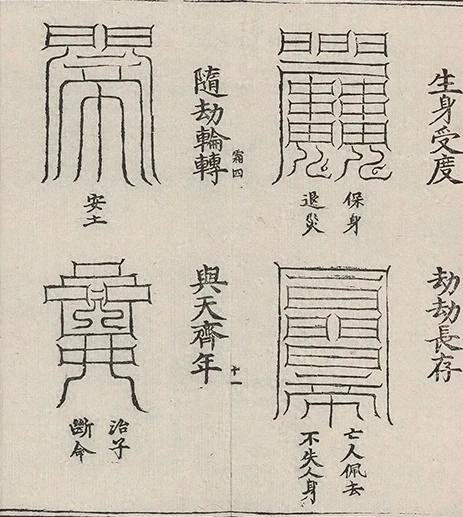 生身受度
保身
退災
劫劫長存
亡人佩去
不失人身
隨劫輪轉
霜四
安土
與天齊年
十一
治子
斷命